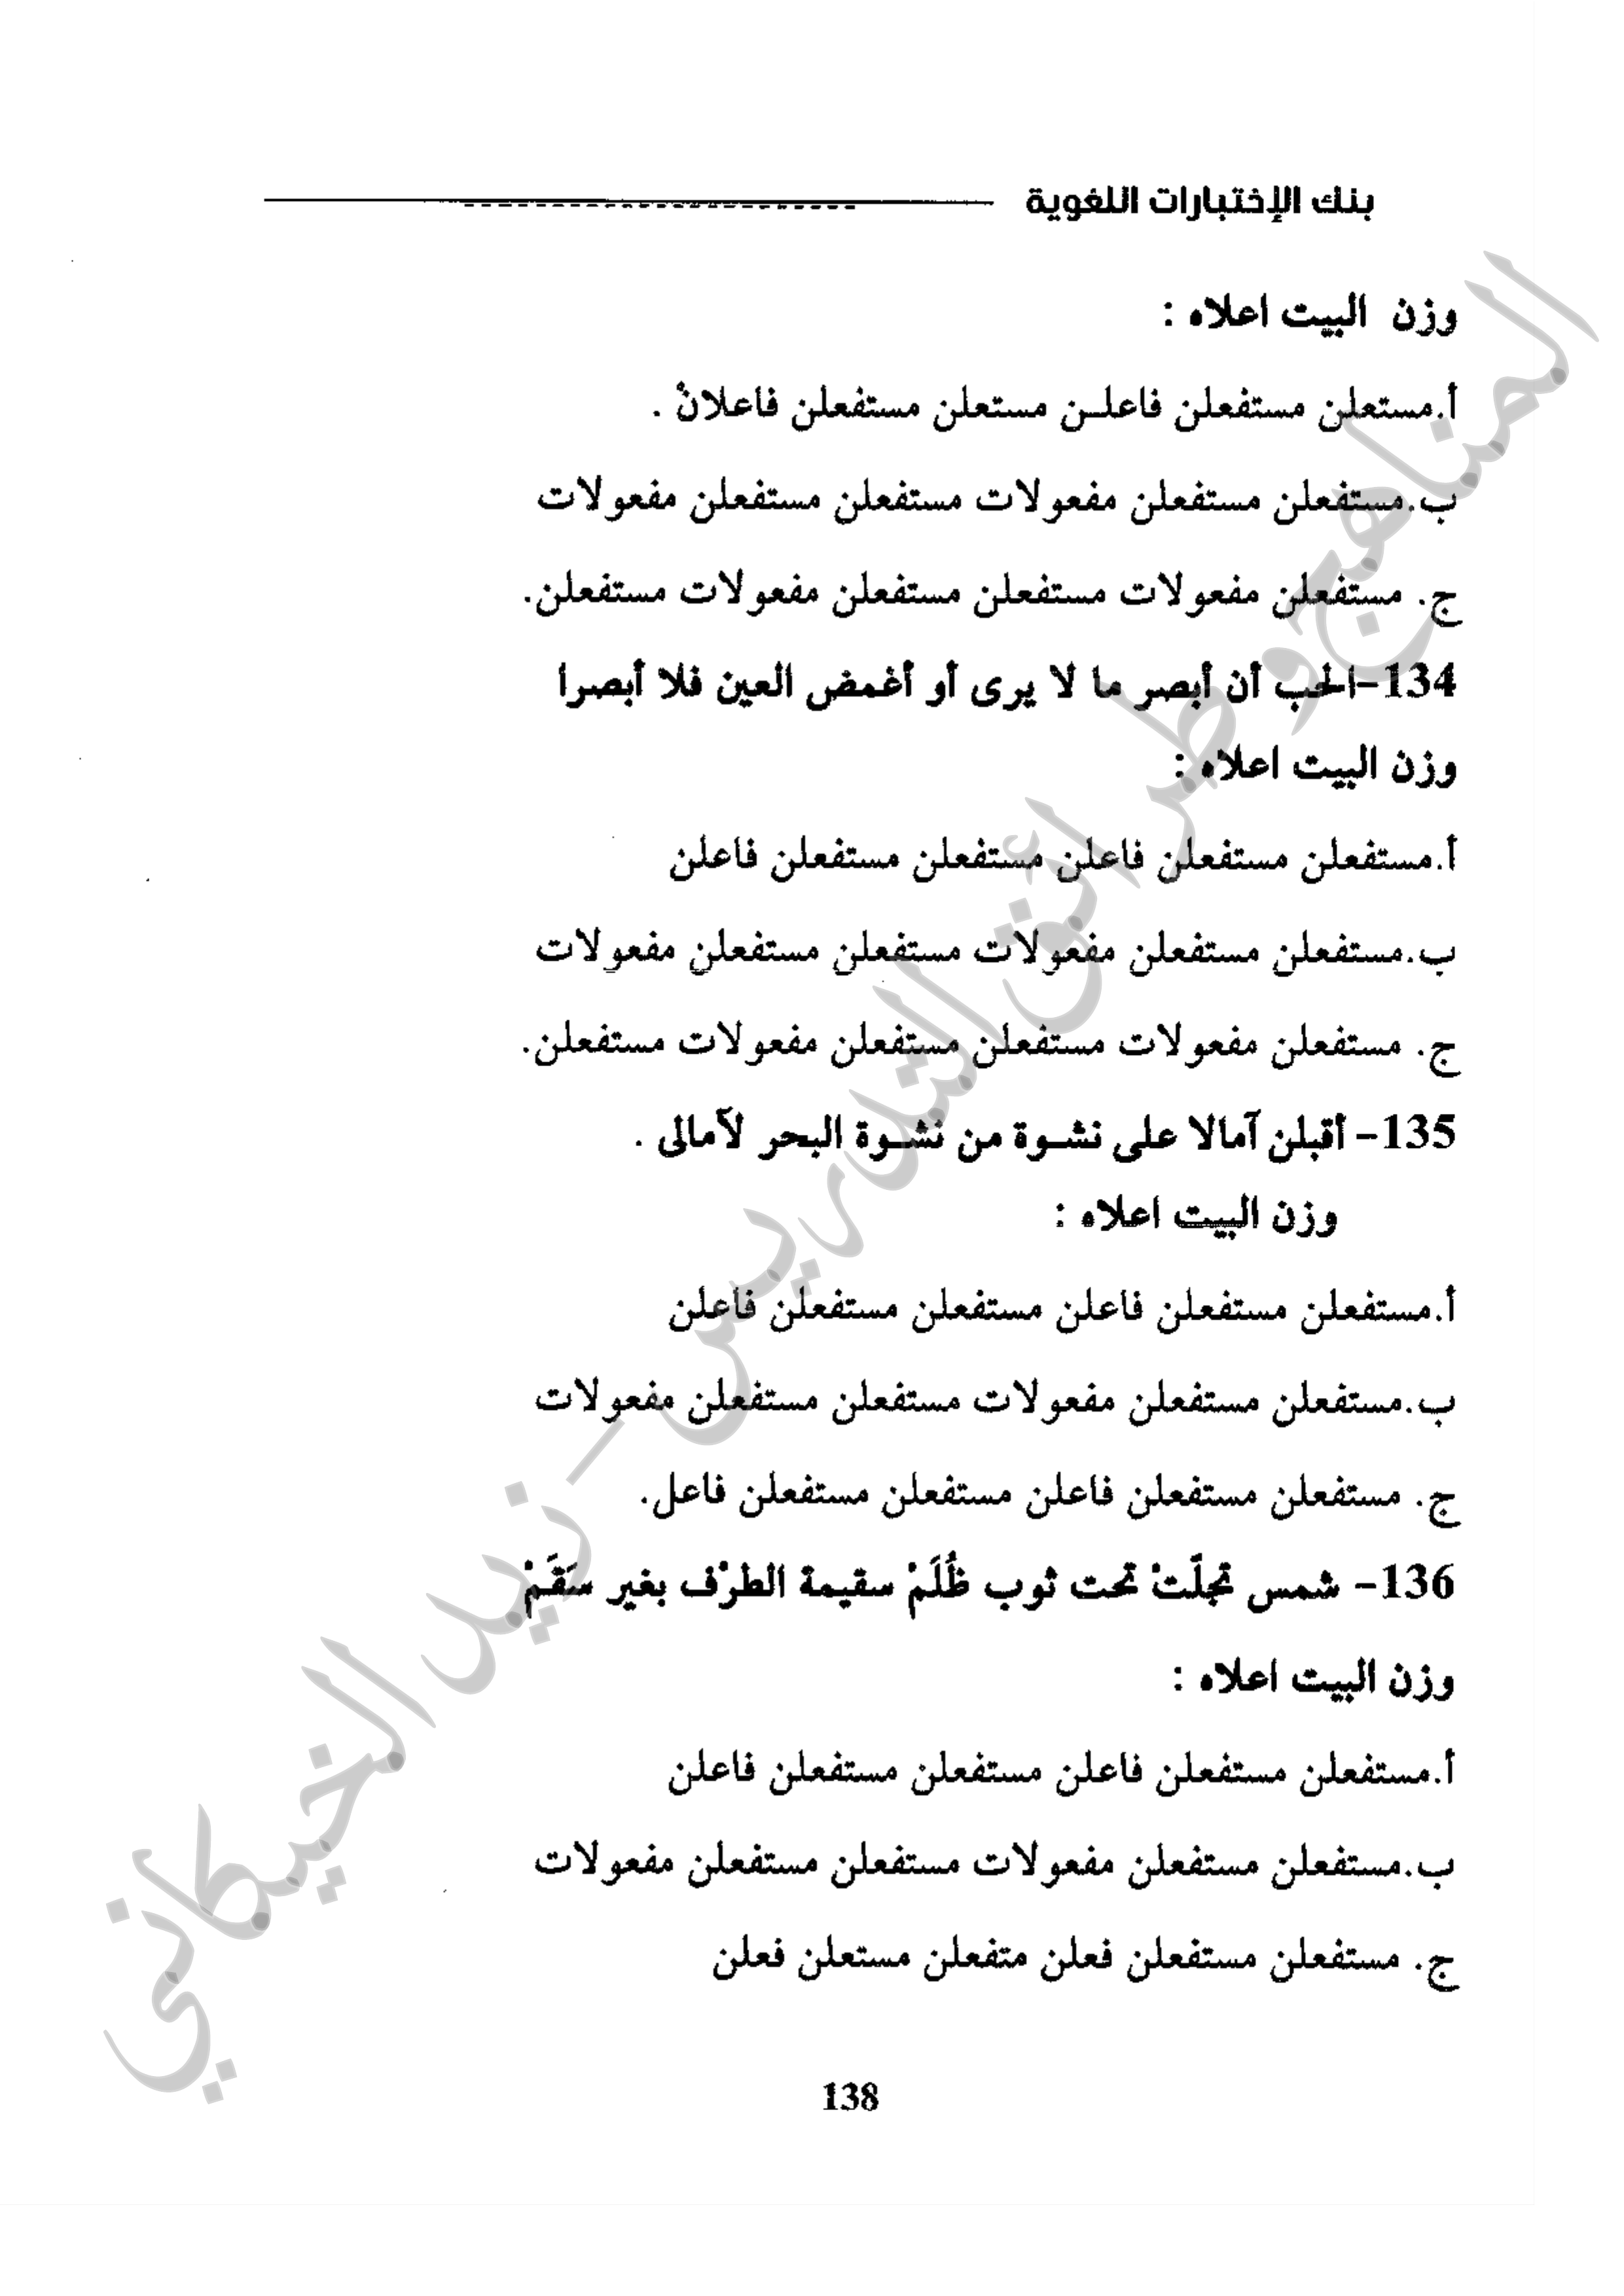 بنك الإختبارات اللغوية
وزن البيت اعلاه :
أ.مستعلن مستفعلن فاعلــن مستعلن مستفعلن فاعلانْ .
ب.مستفعلن مستفعلن مفعولات مستفعلن مستفعلن مفعولات
ج. مستفعلن مفعولات مستفعلن مستفعلن مفعولات مستفعلن.
134-الحب أن أبصر ما لا يرى أو أغمض العين فلا أبصرا
وزن البيت اعلاه :
أ.مستفعلن مستفعلن فاعلن مستفعلن مستفعلن فاعلن
ب.مستفعلن مستفعلن مفعولات مستفعلن مستفعلن مفعولات
ج. مستفعلن مفعولات مستفعلن مستفعلن مفعولات مستفعلن.
135- أقبلن آمالا على نشــوة من نشــوة البحر لآمالى .
وزن البيت اعلاه :
أ.مستفعلن مستفعلن فاعلن مستفعلن مستفعلن فاعلن
ب.مستفعلن مستفعلن مفعولات مستفعلن مستفعلن مفعولات
ج. مستفعلن مستفعلن فاعلن مستفعلن مستفعلن فاعل.
136- شمس تجلّتْ تحت ثوب ظُلَمْ سقيمة الطرْف بغير سَقَمْ
وزن البيت اعلاه :
أ.مستفعلن مستفعلن فاعلن مستفعلن مستفعلن فاعلن
ب.مستفعلن مستفعلن مفعولات مستفعلن مستفعلن مفعولات
ج. مستفعلن مستفعلن فعلن متفعلن مستعلن فعلن
138
المناهج وطرائق التدريس - زيد الخيكاني